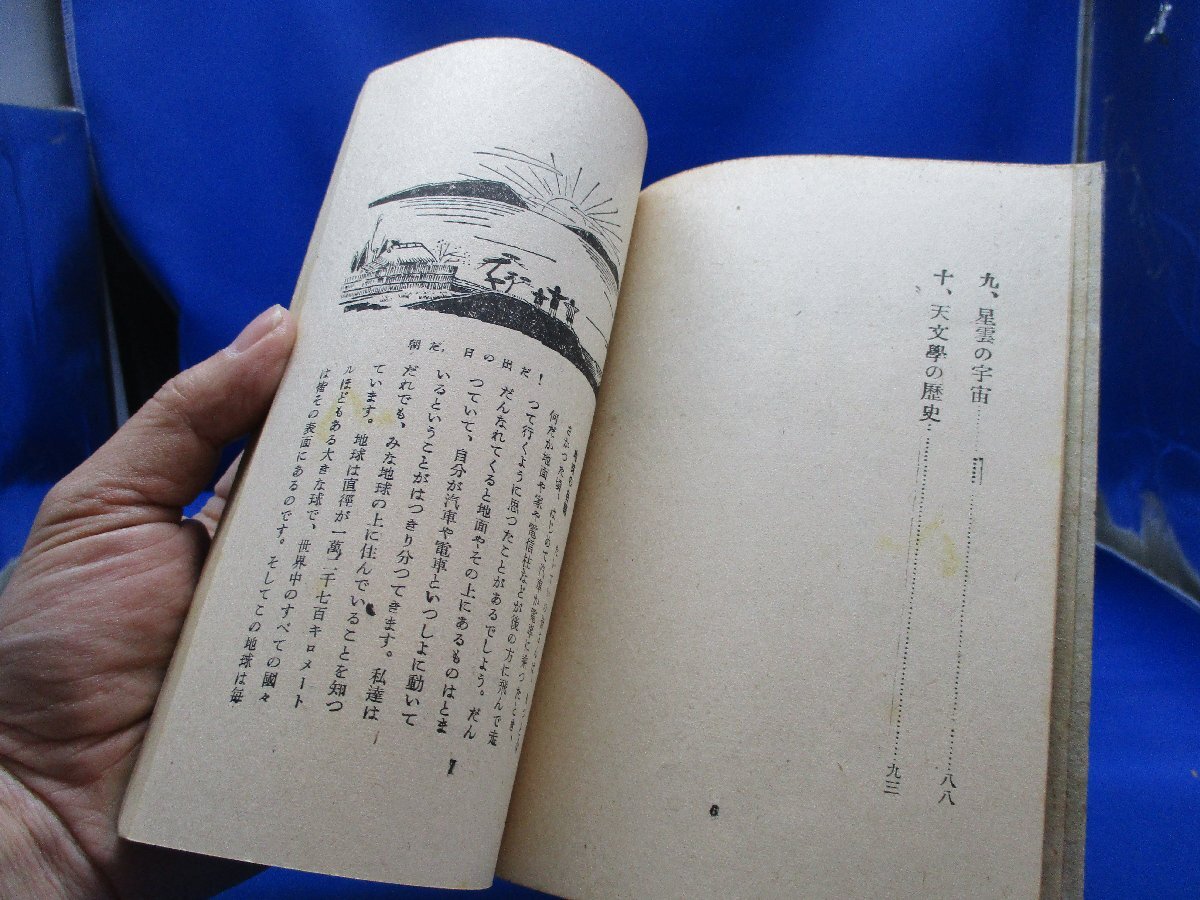 九、星雲の宇宙
八八
十、天文學の歷史
九三
6
朝だ、日の出だ!
地球の自轉
何だか地面や家や電信柱などが後の方に飛んで走
つて行くように思つたことがあるでしよう。だん
だんなれてくると地面やその上にあるものはとま
つていて、自分が汽車や電車といつしよに動いて
いるということがはつきり分つてきます。私達は
だれでも、みな地球の上に住んでいることを知つ
ています。地球は直徑が一萬二千七百キロメート
ルほどもある大きな球で、世界中のすべての國々
は皆その表面にあるのです。そしてこの地球は毎
7